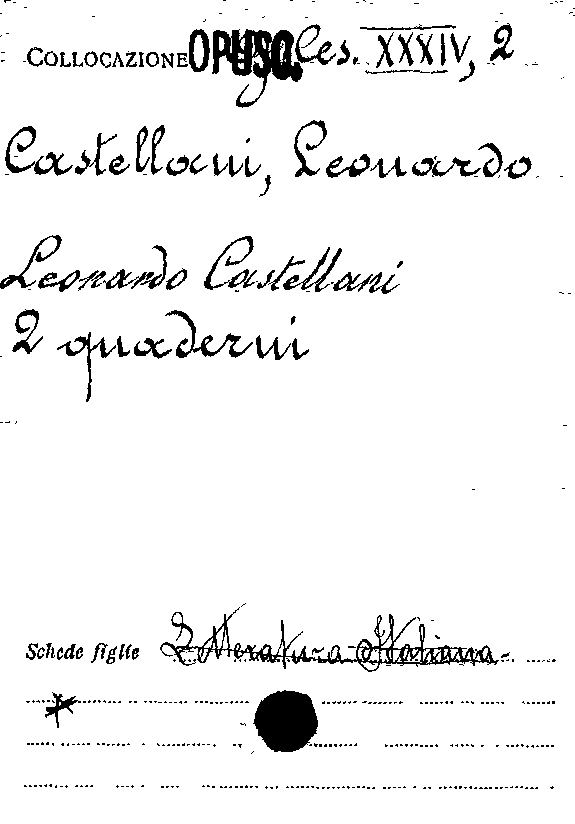 COLLOCAZIONE OPUSC. Ces. XXXIV, 2
Castellani, Leonardo
Leonardo Castellani
2 quaderni
Schede figlie Letteratura Italiana